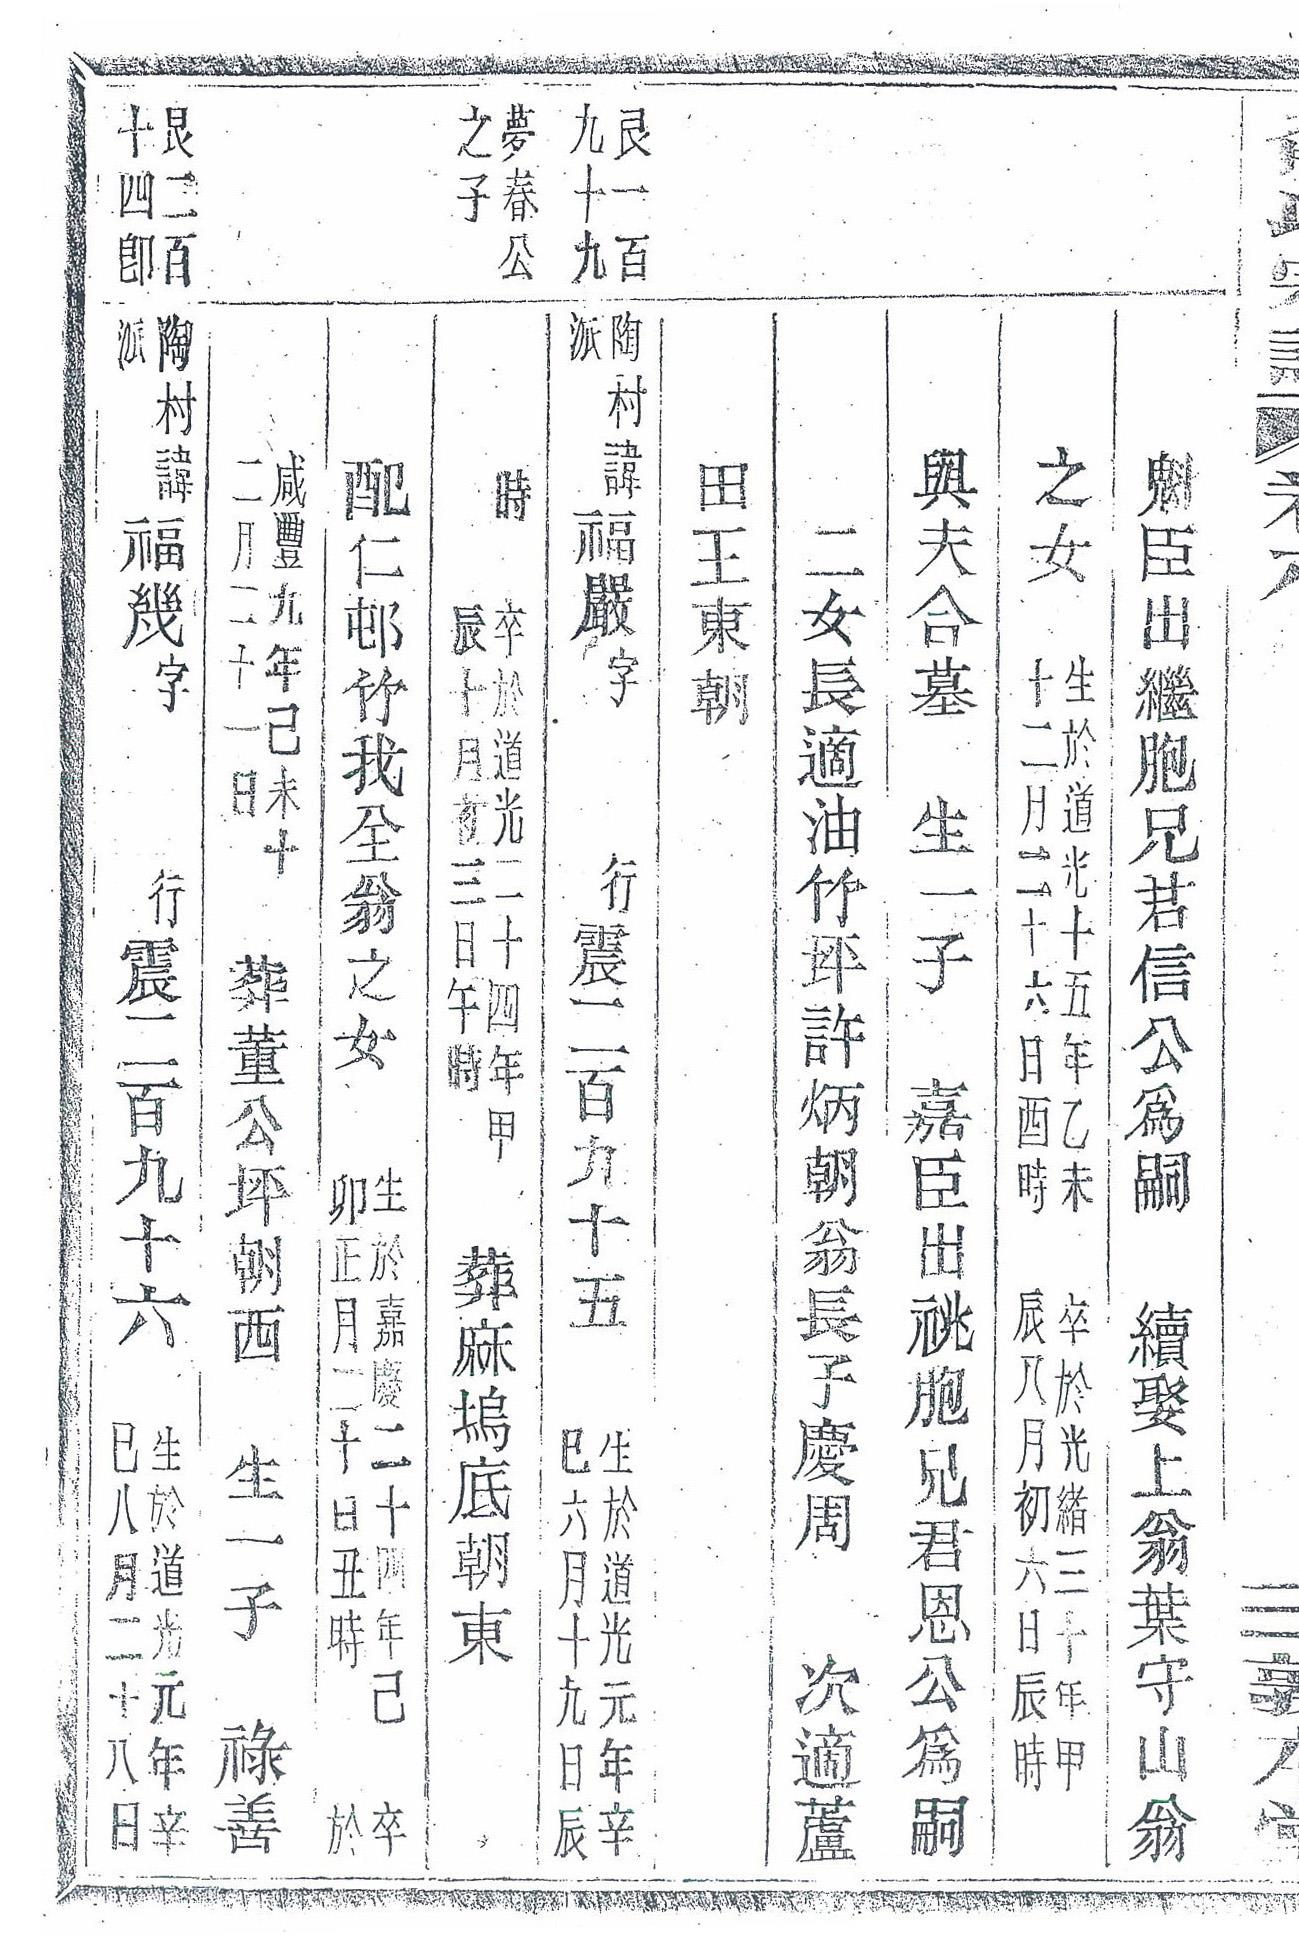 魁臣出繼胞兄君信公爲嗣　續娶上翁葉守山翁
之女　生於道光十五年乙未十二月二十六日酉時　卒於光緒三十年甲辰八月初六日辰時
與夫合墓　生一子　嘉臣出祧胞兄君恩公爲嗣
二女長適油竹坪許炳朝翁長子慶周　次適蘆
田王東朝
艮一百九十九
陶村派諱福嚴字　行震二百九十五　生於道光元年辛巳六月十九日辰
夢春公之子
時　卒於道光二十四年甲辰十月廿三日午時　葬麻塢底朝東
配仁邨竹我全翁之女　生於嘉慶二十四年己卯正月二十日丑時　卒於
咸豐九年己未十二月二十一日　葬董公坪朝西　生一子　祿善
艮二百十四郎
陶村派諱福幾字　行震二百九十六　生於道光元年辛巳八月二十八日